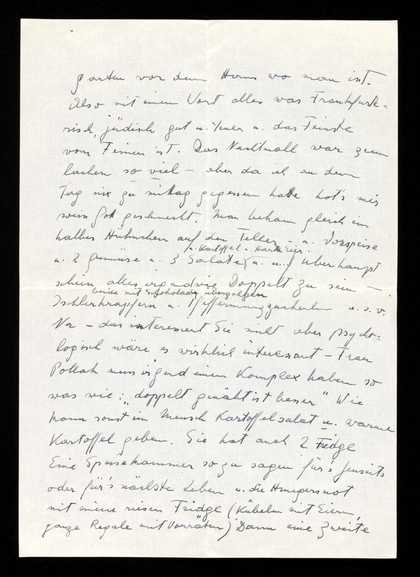 garten vor dem Haus wo man ist.
Also mit einem Wort alles was Frankfurt-
risch, jüdisch gut u. teuer u. das Feinste
vom Feinen ist. Das Nachtmall war zum
lachen so viel – aber da ich an dem
Tag nix zu mitag gegessen habe hat's mir
sehr gut geschmeckt. Man bekam gleich ein
halbes Hühnchen auf den Teller – u. Vorspeise
u. Kartoffel
u. 2 Gemüse u. 3 Salate u. u. überhaupt
schien alles irgendwie Doppelt zu sein –
Eines mit Schokolade übergossen
Ischlerkrapferln u. Pfefferminz u.s.w.
Na – das interessiert Sie nicht aber psycho-
logisch wäre es wirklich interessant – Frau
Pollak muss irgend einen Komplex haben so
was wie: "doppelt genäht ist besser" Wie
kann sonst ein Mensch Kartoffelsalat u. warme
Kartoffel geben. Sie hat auch 2 Fridge
Eine Speisekammer so zu sagen für's Jenseits
oder für's nächste Leben u. die Hungersnot
mit einer riesen Fridge (Kübeln mit Eiern,
ganze Regale mit Vorräten) Dann eine zweite